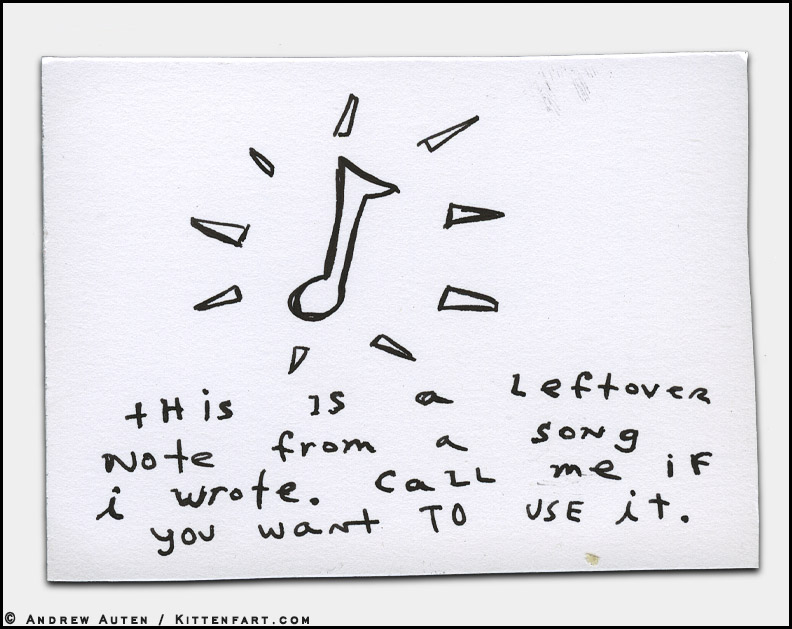 tHis IS a Leftover
Note from a soNg
i wrote. CaLL me iF
you want TO USE it.
© ANDREW AUTEN / KITTENFART.COM